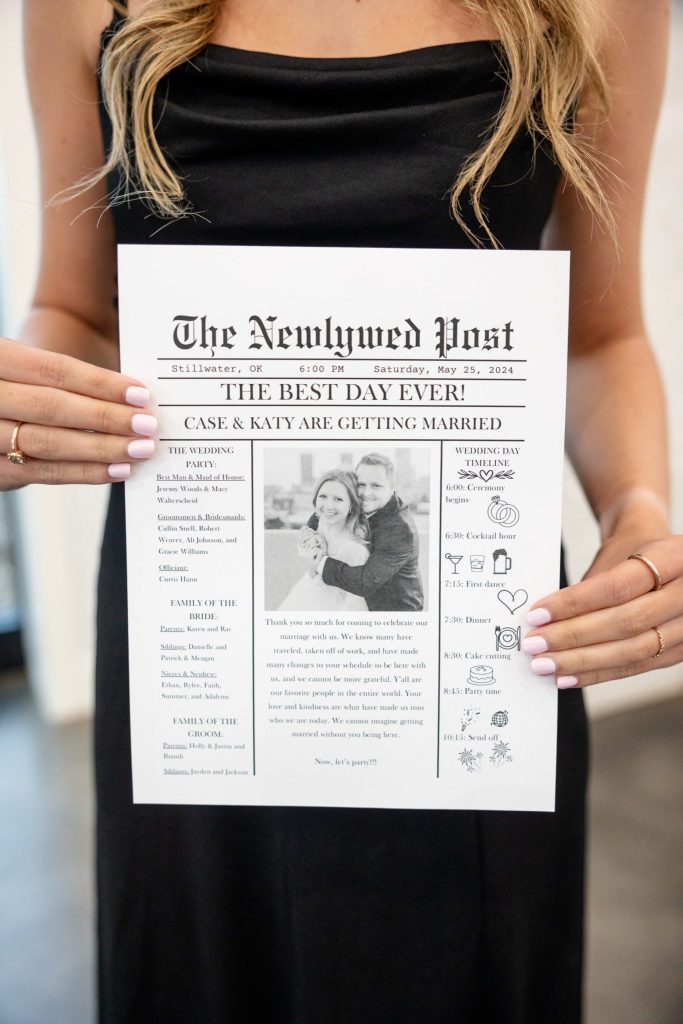 The Newlywed Post
Stillwater, OK 6:00 PM Saturday, May 25, 2024
THE BEST DAY EVER!
CASE & KATY ARE GETTING MARRIED
THE WEDDING
PARTY:
Best Man & Maid of Honor:
Jeremy Woods & Macy
Walterscheid
Groomsmen & Bridesmaids:
Cullin Snell, Robert
Weaver, Ali Johnson, and
Gracie Williams
Officiant:
Curtis Hann
FAMILY OF THE
BRIDE:
Parents: Karen and Ray
Siblings: Danielle and
Patrick & Meagan
Nieces & Nephew:
Ethan, Rylee, Faith,
Summer, and Adalynn
FAMILY OF THE
GROOM:
Parents: Holly & Justin and
Brandi
Siblings: Jayden and Jackson
Thank you so much for coming to celebrate our
marriage with us. We know many have
traveled, taken off of work, and have made
many changes to your schedule to be here with
us, and we cannot be more grateful. Y'all are
our favorite people in the entire world. Your
love and kindness are what have made us into
who we are today. We cannot imagine getting
married without you being here.
Now, let's party!!!
WEDDING DAY
TIMELINE
6:00: Ceremony
begins
6:30: Cocktail hour
7:15: First dance
7:30: Dinner
8:30: Cake cutting
8:45: Party time
10:15: Send off